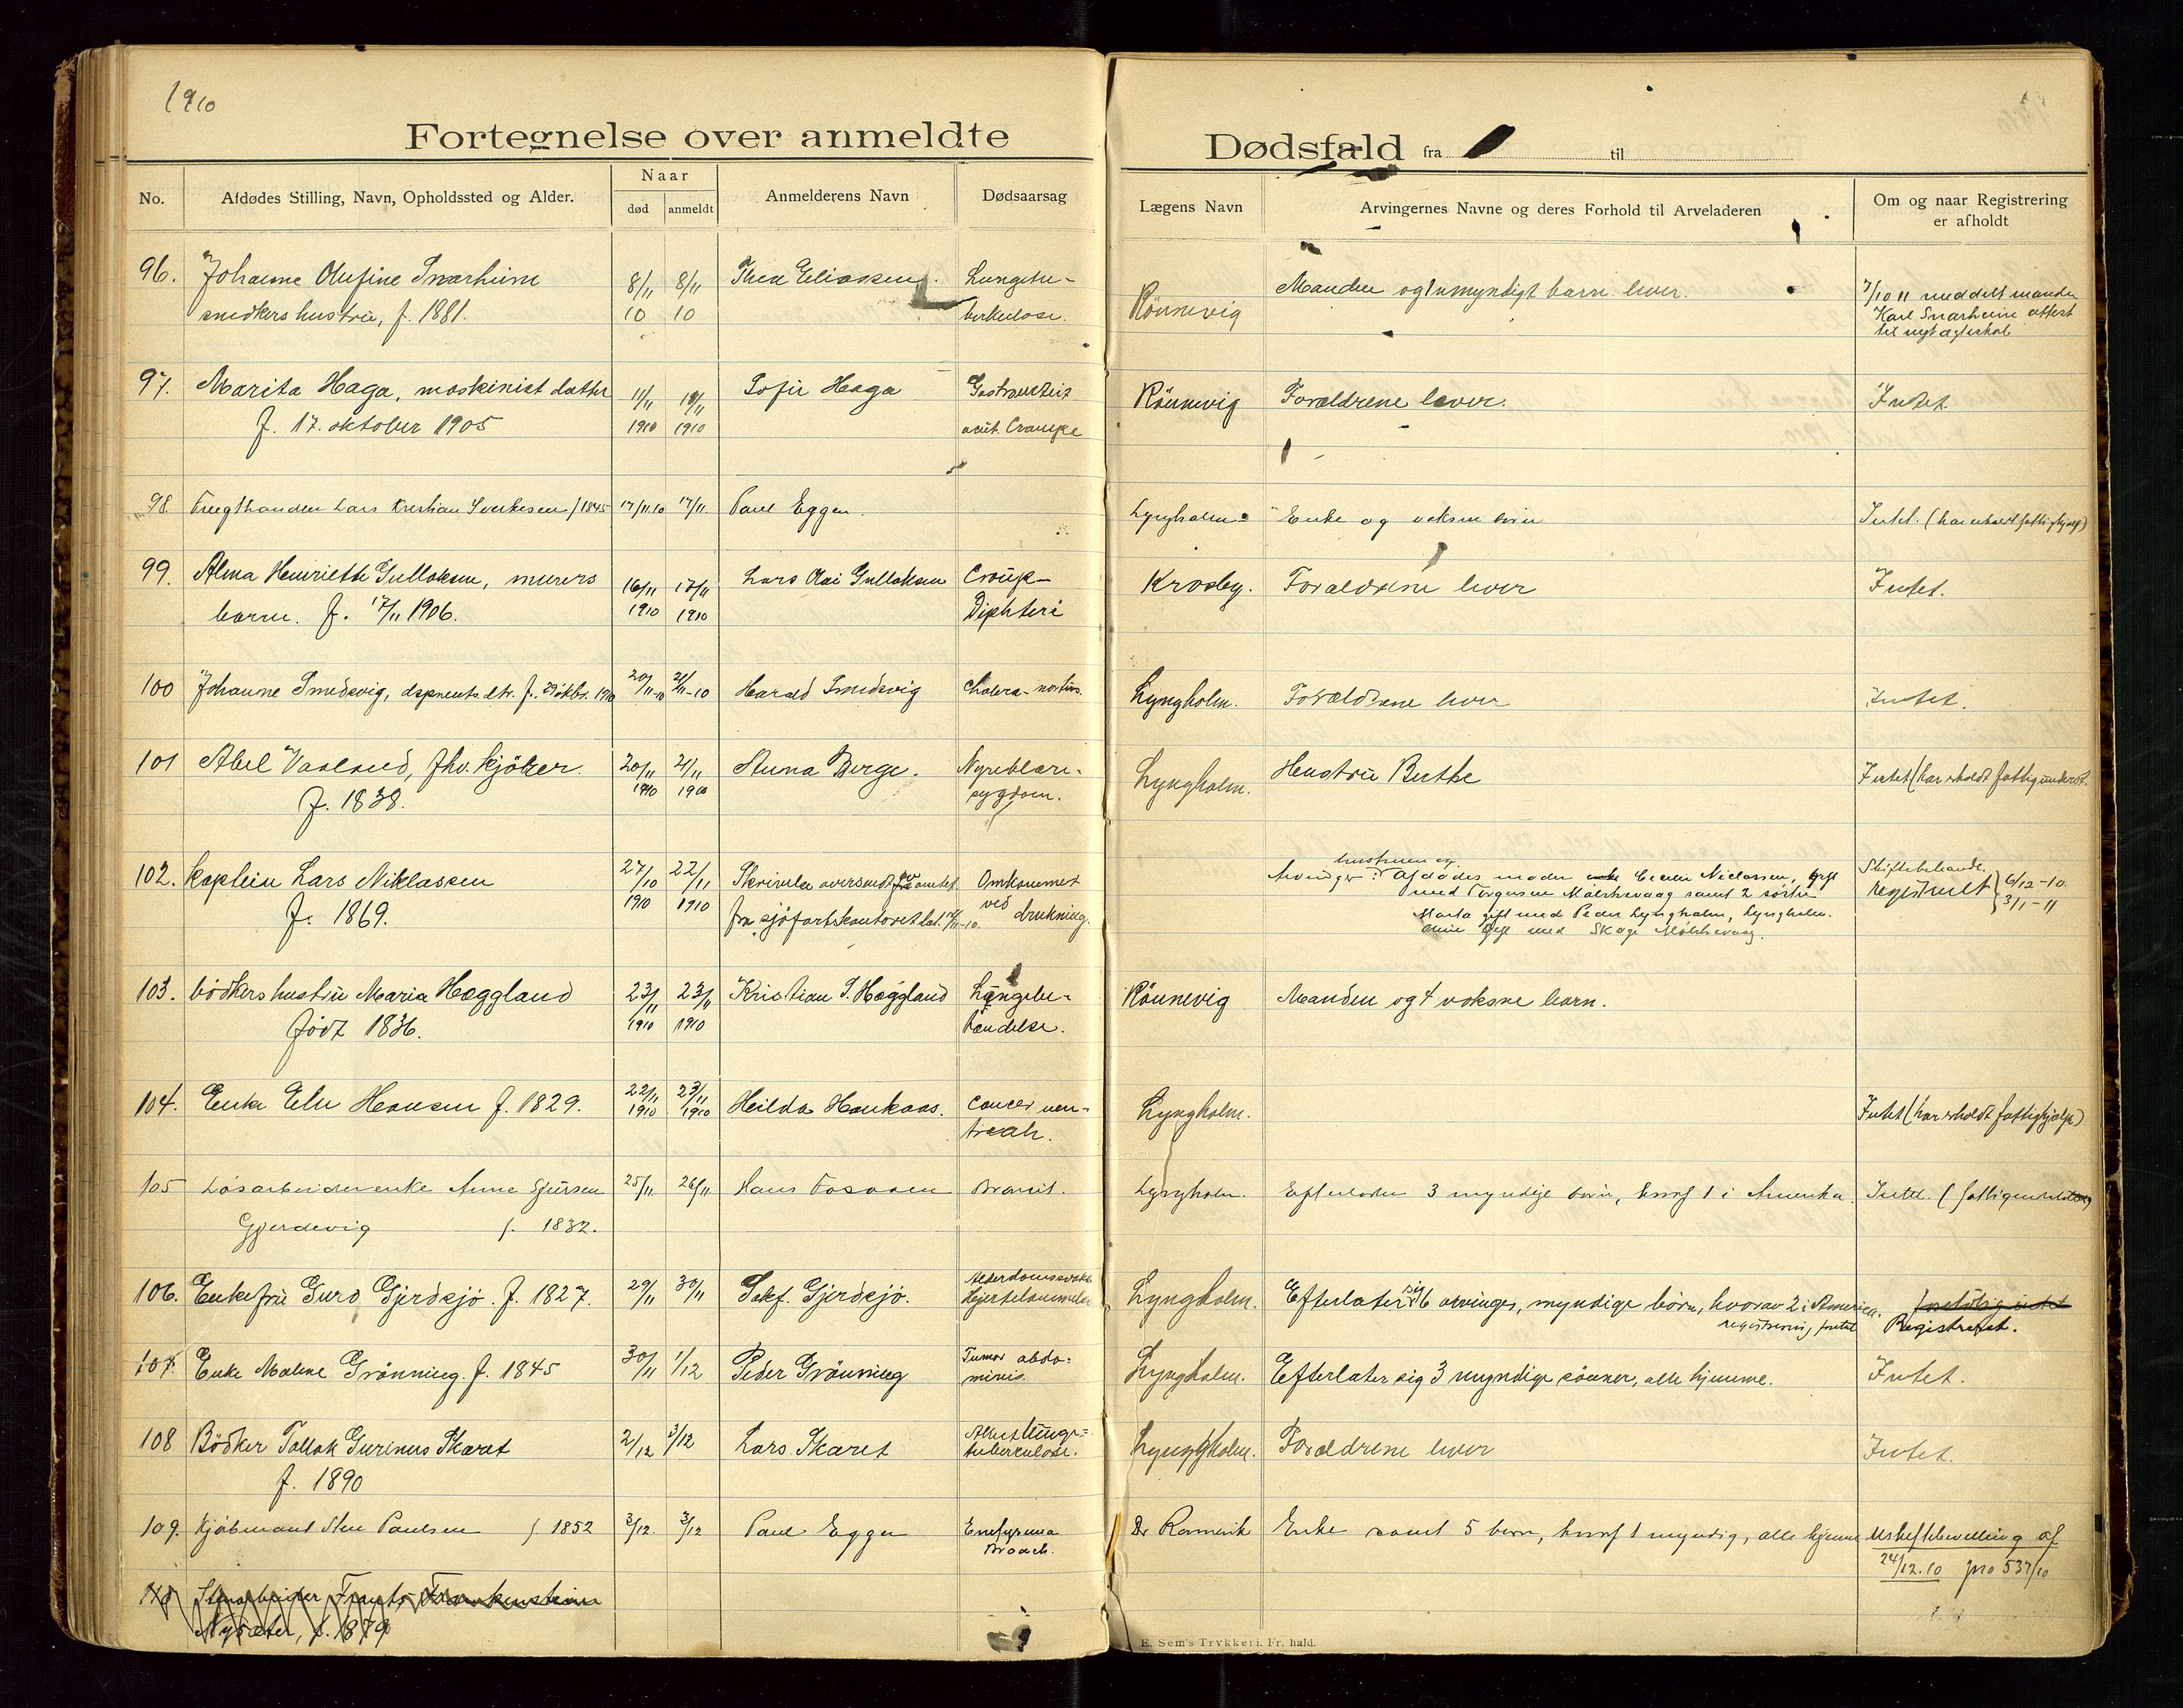 1910
Fortegnelse over anmeldte
Dødsfald fra til
No.
Afdødes Stilling, Navn, Opholdssted og Alder.
Naar
død
anmeldt
Anmelderens Navn
Dødsaarsag
Lægens Navn
Arvingernes Navne og deres Forhold til Arveladeren
Om og naar Registrering
er afholdt
96. Johanne Olufine Snarheim 8/11 8/11 Thea Eliassen Lungetu-
snedkers hustru, f. 1881. 10 10 berkulose.
Rönnevig Manden og 1 umyndigt barn lever. 7/10 11 meddelt manden
Karl Snarheim attest
til nyt ægteskab
97. Marita Haga, maskinist datter 11/11 Sofie Haga
f. 17. oktober 1905 1910 1910 acut.
Rönnevig Forældrene lever. Intet.
98. Lars Kristian f 1845 17/11.10 17/11 Paul Eggen
Lyngholm Enke og voksne børn Intet. (har erholdt fattighjælp)
99. Alma Henriette Gullaksen, murers 16/11 17/11 Lars Olai Gullaksen Croup-
barn. f. 17/11 1906. 1910 1910 Diphteri
Krosby. Forældrene lever Intet.
100 Johanne Smedsvig, f. 29 oktbr. 1910 20/11-10 21/11-10 Harald Smedsvig Cholera-
Lyngholm. Forældrene lever Intet.
101 Abel Vaaland, fhv. 20/11 21/11 Anna Berge. Nyreblære-
f. 1838. 1910 1910 sygdom.
Lyngholm. Hustru Berthe Intet (har erholdt fattigunderst.
102. Kaptein Lars Niklassen 27/10 22/11 Skrivelse oversendt amtet Omkommet
f. 1869. 1910 1910 fra sjöfartskontoret dat. ved drukning.
hustruen og
Arvinger: Afdödes moder Niclassen, gift
med Torgersen samt 2 söstre
Marta gift med Peder Lyngholm, Lyngholm.
gift med
Skiftebehandl.
registrert 6/12-10.
3/1-11
103. bödkers hustru Maria Hæggland 23/11 23/11 Kristian S. Hæggland Lungebe-
födt 1836. 1910 1910 tændelse.
Rönnevig Manden og 4 voksne barn.
104. Enke Elen Hansen f. 1829. 22/11 23/11 Hilda Haukaas. Cancer ven-
1910 1910
Lyngholm. Intet (har erholdt fattighjælp)
105 Løsarbeiderenke Anne 25/11 26/11 Hans
Gjerdevig f. 1832.
Lyngholm. Efterlader 3 myndige børn, hvoraf 1 i Amerika. Intet.
106. Enkefru Guro Gjerdsjö. f. 1827. 29/11 30/11 Gjerdsjö. Alderdomssvakh.
Hjertelammelse
Lyngholm. Efterlater sig 6 arvinger, myndige börn, hvorav 2 i America. Foreløbig intet
registrering Registreret.
107. Enke Malene Grönning. f. 1845 30/11 1/12 Peder Grönning Tumor abdo-
minis.
Lyngholm. Efterlater sig 3 myndige sönner, alle hjemme. Intet.
108 Bödker Tallak Gurinus Skaret 2/12 3/12 Lars Skaret Lunge-
f. 1890 tuberculose.
Lyngholm. Forældrene lever Intet.
109. Kjøbmand Paulsen f 1852 3/12. 3/12 Paul Eggen Emfysema
Bronch.
Dr Enke samt 5 barn, hvoraf 1 myndig, alle hjemme Uskiftebevilling af
24/12.10 jno 537/10
110 Stenarbeider Frants Frankenstein
f. 1879
E. Sem's Trykkeri. Fr. hald.